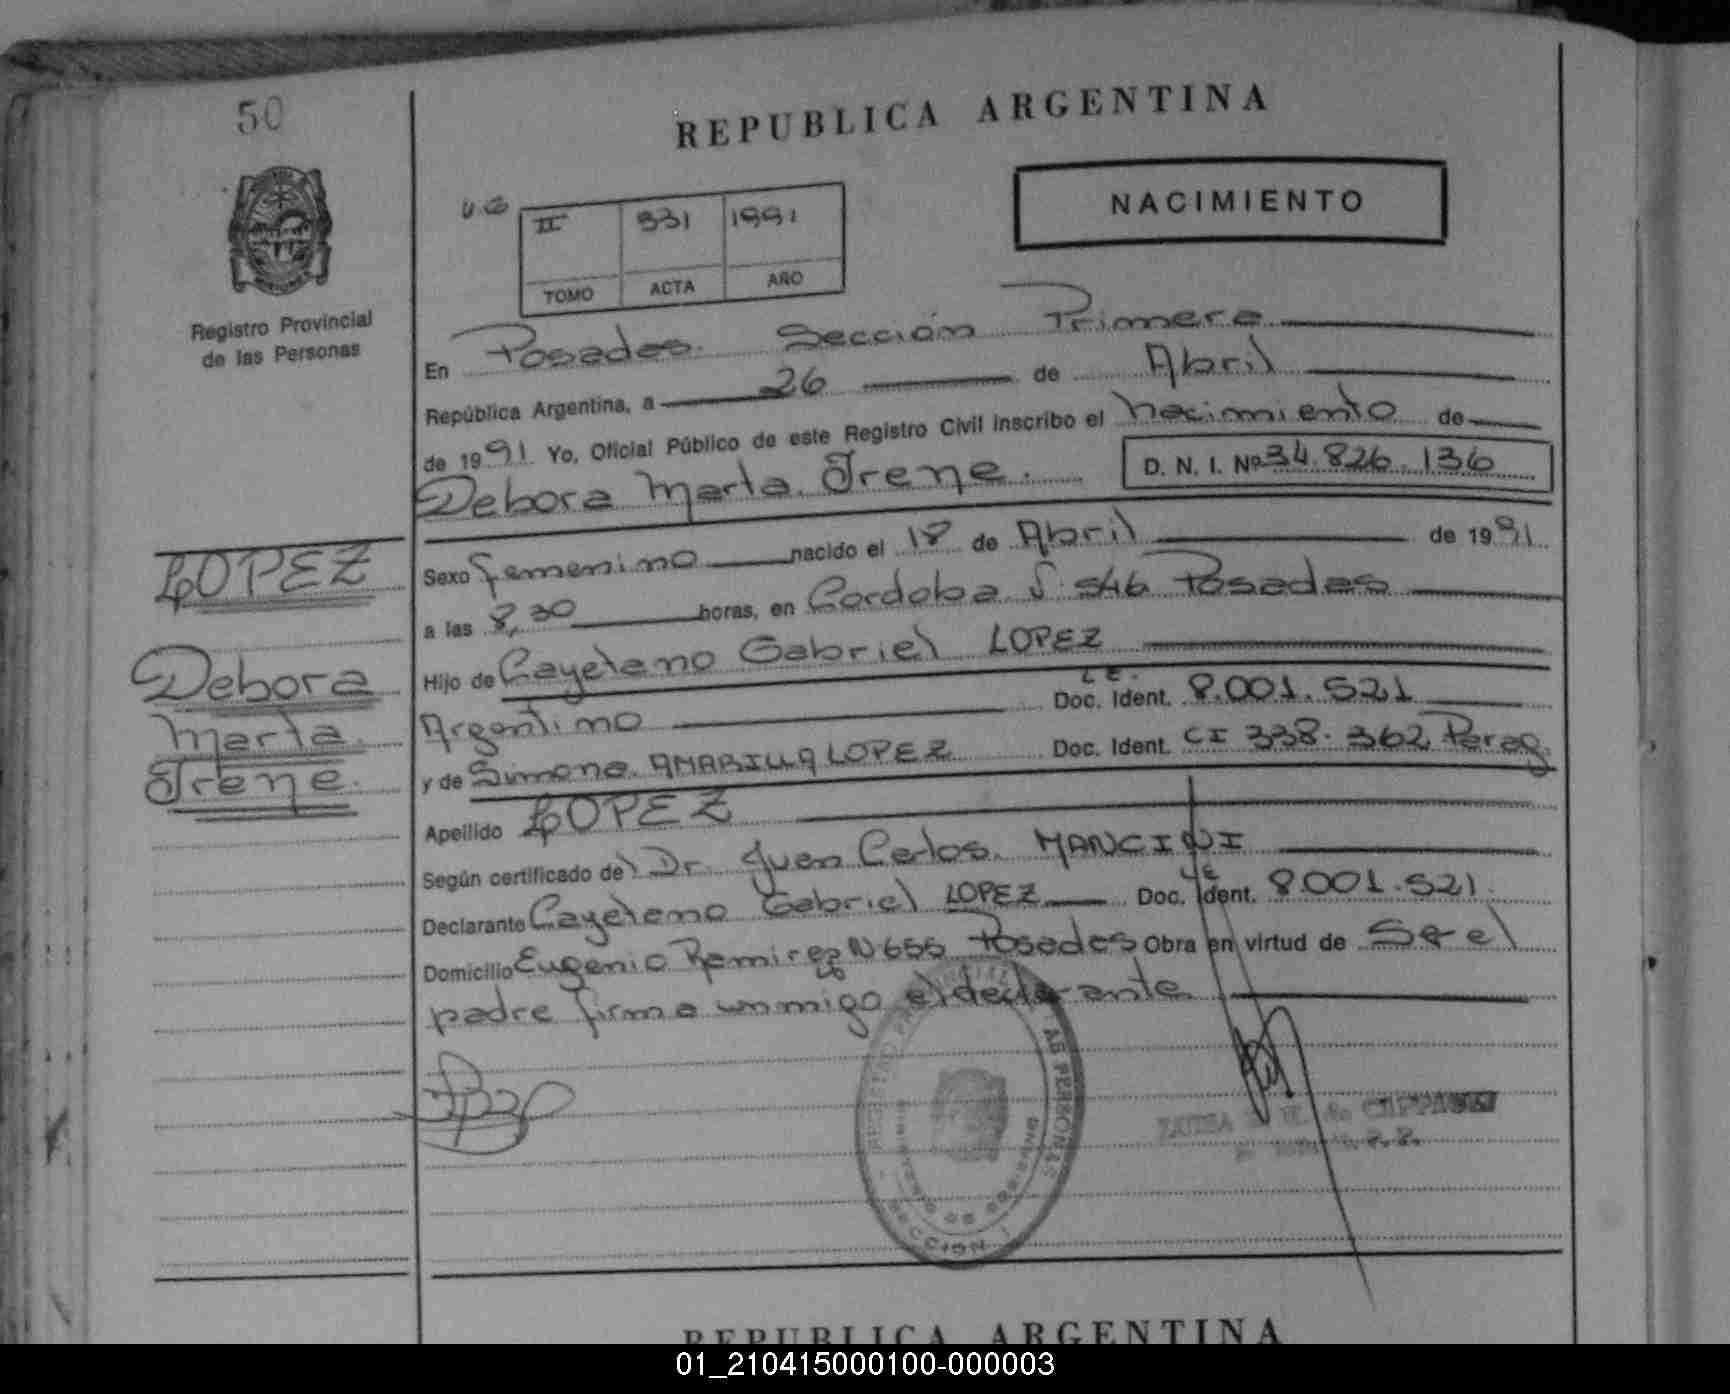 50
REPUBLICA ARGENTINA
NACIMIENTO
II 331 1991
TOMO ACTA AÑO
Registro Provincial
de las Personas
En Posadas. Sección Primera
República Argentina, a 26 de Abril
de 1991 Yo, Oficial Público de este Registro Civil inscribo el nacimiento de
Debora Marta Irene. D. N. I. Nº 34.826.136
LOPEZ
Sexo femenino nacido el 18 de Abril de 1991
a las 8,30 horas, en Cordoba 546 Posadas
Debora
Marta
Irene.
Hijo de Cayetano Gabriel LOPEZ
L.E.
Argentino Doc. Ident. 8.001.521
y de Simona AMARILLA LOPEZ Doc. Ident. CI 338.362 Parag.
Apellido LOPEZ
Según certificado del Dr. Juan Carlos MANCINI
LE
Declarante Cayetano Gabriel LOPEZ Doc. Ident. 8.001.521
Domicilio Eugenio Ramirez N 655 Posadas Obra en virtud de Ser el
padre firma conmigo el declarante
REGISTRO PROVINCIAL PERSONAS
MINISTERIO DE GOBIERNO
SECCION 1
REPUBLICA ARGENTINA
01_210415000100-000003